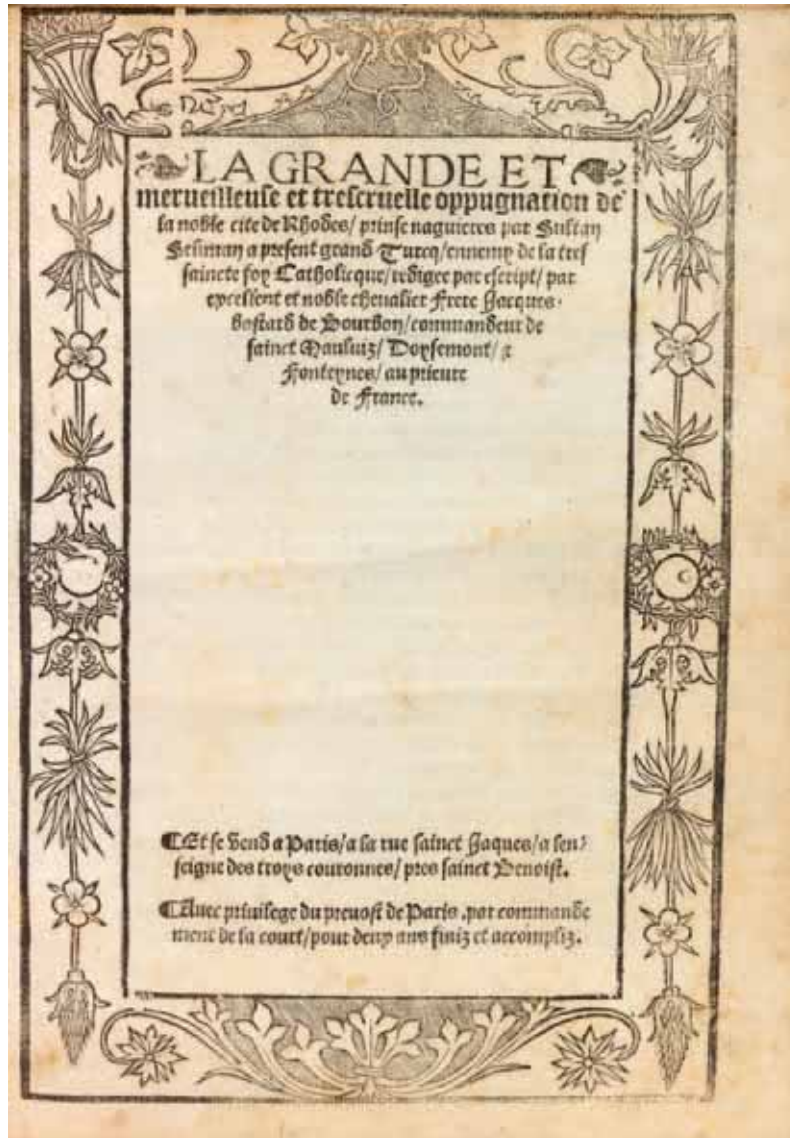 LA GRANDE ET
merueilleuse et trescruelle oppugnation de
la noble cite de Rhodes/ prinse naguieres par Sultan
Seliman a present grand Turcq/ennemy de la tres
saincte foy Catholicque/redigee par escript/ par
excellent et noble cheualier Frere Jacques
bastard de Bourbon/commandeur de
sainct Mauluiz/ Doysemont/ ⁊
Fonteynes/ au prieure
de France.
¶Et se vend a Paris/a la rue sainct Jaques/a len⸗
seigne des troys couronnes/ pres sainct Benoist.
¶Auec priuilege du preuost de Paris .par commande
ment de la court/pour deux ans finiz et accompliz.